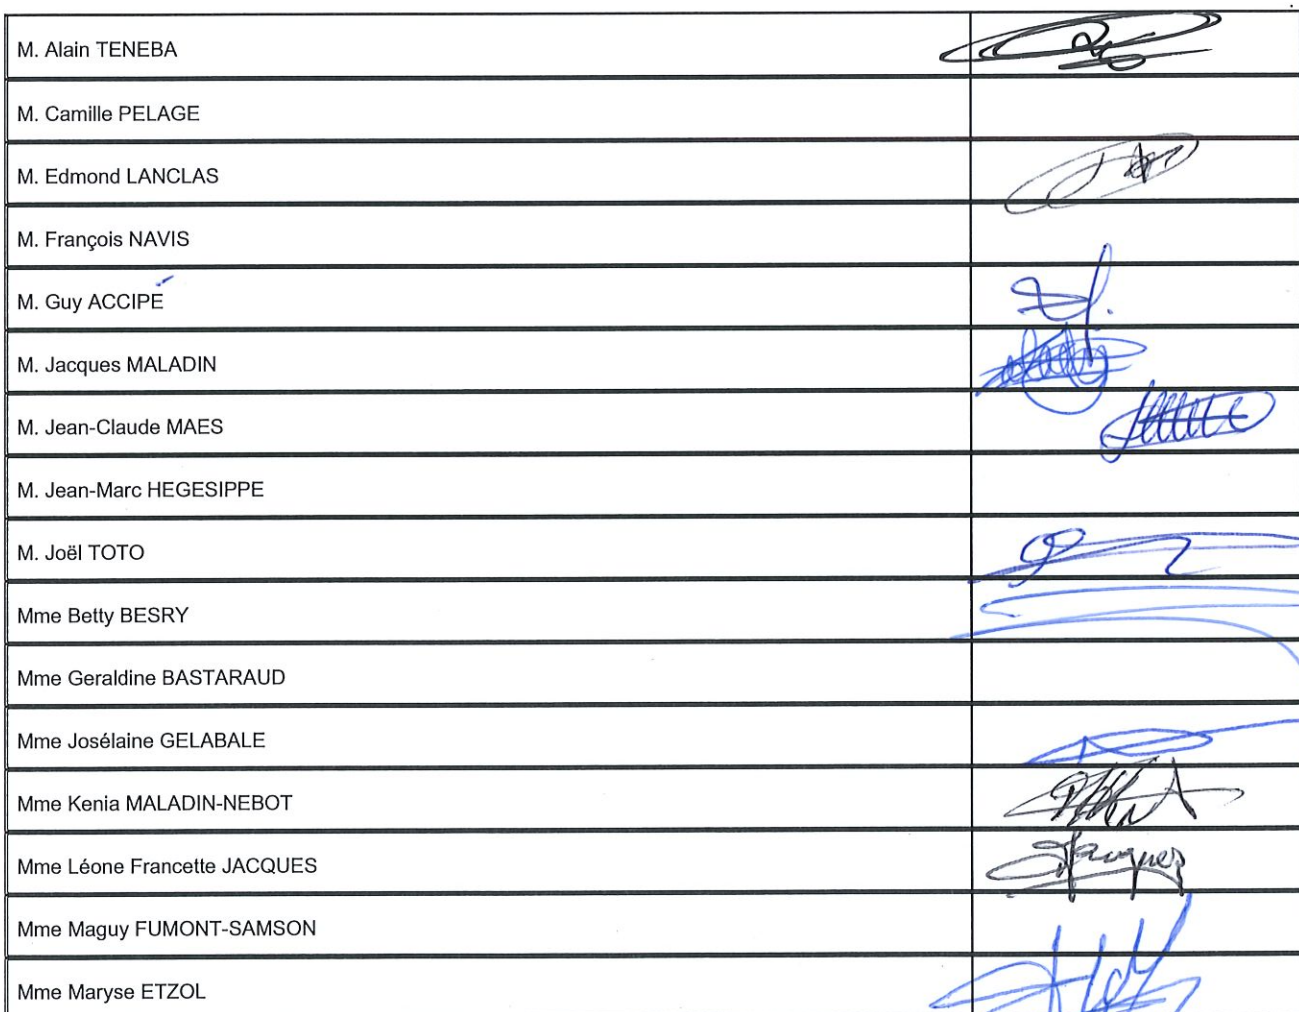 M. Alain TENEBA
M. Camille PELAGE
M. Edmond LANCLAS
M. François NAVIS
M. Guy ACCIPÉ
M. Jacques MALADIN
M. Jean-Claude MAES
M. Jean-Marc HEGESIPPE
M. Joël TOTO
Mme Betty BESRY
Mme Geraldine BASTARAUD
Mme Josélaine GELABALE
Mme Kenia MALADIN-NEBOT
Mme Léone Francette JACQUES Jacques
Mme Maguy FUMONT-SAMSON
Mme Maryse ETZOL